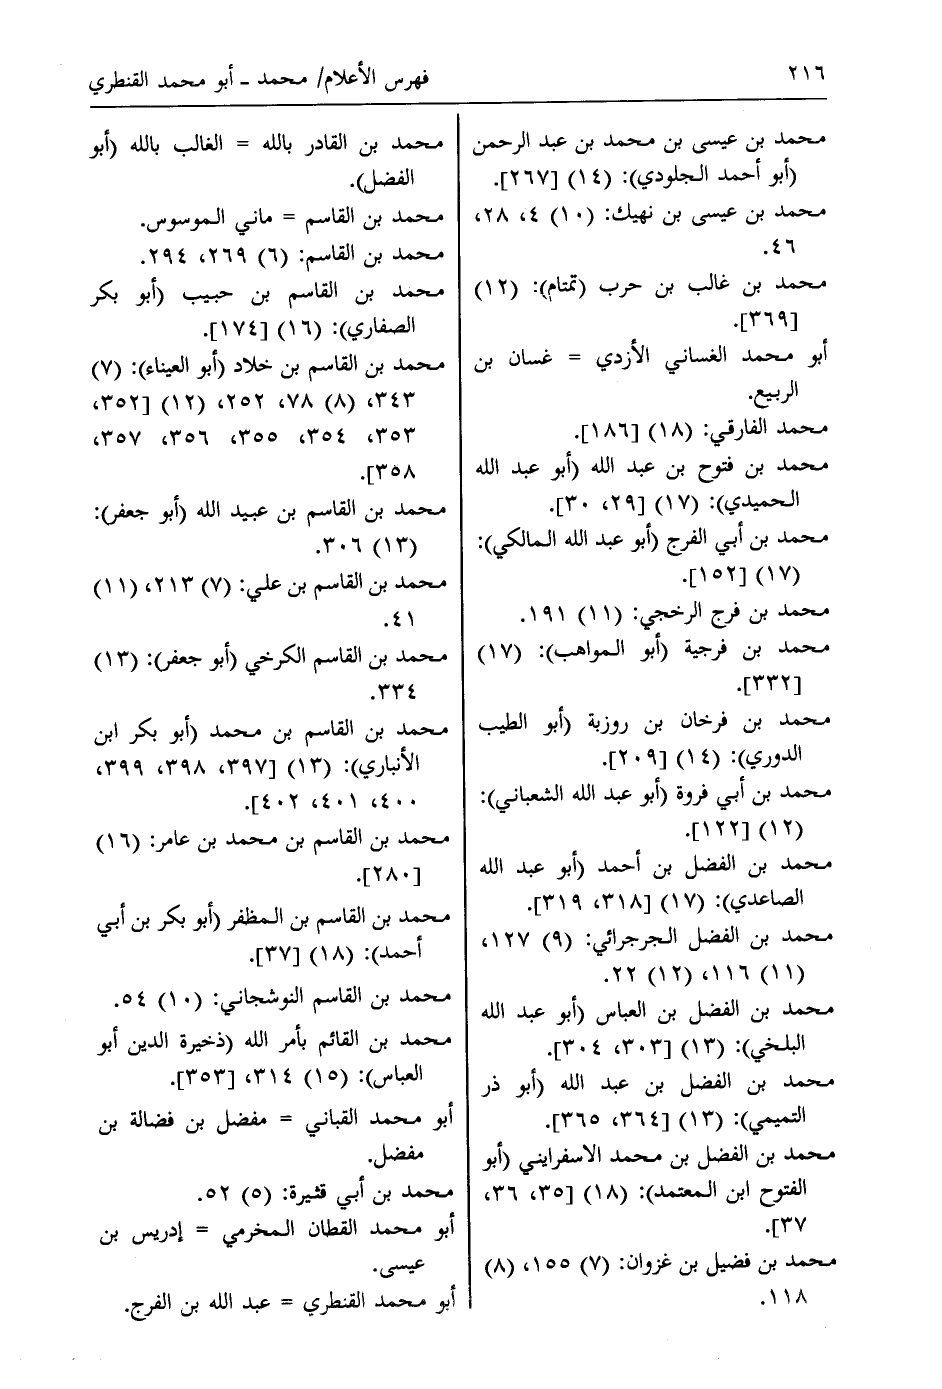 ٢١٦
فهرس الأعلام/ محمد ـ أبو محمد القنطري
محمد بن عيسى بن محمد بن عبد الرحمن
(أبو أحمد الجلودي): (١٤) [٢٦٧].
محمد بن عيسى بن نهيك: (١٠) ٤، ٢٨،
٤٦.
محمد بن غالب بن حرب (تمتام): (١٢)
[٣٦٩].
أبو محمد الغساني الأزدي = غسان بن
الربيع.
محمد الفارقي: (١٨) [١٨٦].
محمد بن فتوح بن عبد الله (أبو عبد الله
الحميدي): (١٧) [٢٩، ٣٠].
محمد بن أبي الفرج (أبو عبد الله المالكي):
(١٧) [١٥٢].
محمد بن فرج الرخجي: (١١) ١٩١.
محمد بن فرجية (أبو المواهب): (١٧)
[٣٣٢].
محمد بن فرخان بن روزبة (أبو الطيب
الدوري): (١٤) [٢٠٩].
محمد بن أبي فروة (أبو عبد الله الشعباني):
(١٢) [١٢٢].
محمد بن الفضل بن أحمد (أبو عبد الله
الصاعدي): (١٧) [٣١٨، ٣١٩].
محمد بن الفضل الجرجرائي: (٩) ١٢٧،
(١١) ١١٦، (١٢) ٢٢.
محمد بن الفضل بن العباس (أبو عبد الله
البلخي): (١٣) [٣٠٣، ٣٠٤].
محمد بن الفضل بن عبد الله (أبو ذر
التميمي): (١٣) [٣٦٤، ٣٦٥].
محمد بن الفضل بن محمد الاسفرايني (أبو
الفتوح ابن المعتمد): (١٨) [٣٥، ٣٦،
٣٧].
محمد بن فضيل بن غزوان: (٧) ١٥٥، (٨)
١١٨.
محمد بن القادر بالله = الغالب بالله (أبو
الفضل).
محمد بن القاسم = ماني الموسوس.
محمد بن القاسم: (٦) ٢٦٩، ٢٩٤.
محمد بن القاسم بن حبيب (أبو بكر
الصفاري): (١٦) [١٧٤].
محمد بن القاسم بن خلاد (أبو العيناء): (٧)
٣٤٣، (٨) ٧٨، ٢٥٢، (١٢) [٣٥٢،
٣٥٣، ٣٥٤، ٣٥٥، ٣٥٦، ٣٥٧،
٣٥٨].
محمد بن القاسم بن عبيد الله (أبو جعفر):
(١٣) ٣٠٦.
محمد بن القاسم بن علي: (٧) ٢١٣، (١١)
٤١.
محمد بن القاسم الكرخي (أبو جعفر): (١٣)
٣٣٤.
محمد بن القاسم بن محمد (أبو بكر ابن
الأنباري): (١٣) [٣٩٧، ٣٩٨، ٣٩٩،
٤٠٠، ٤٠١، ٤٠٢].
محمد بن القاسم بن محمد بن عامر: (١٦)
[٢٨٠].
محمد بن القاسم بن المظفر (أبو بكر بن أبي
أحمد): (١٨) [٣٧].
محمد بن القاسم النوشجاني: (١٠) ٥٤.
محمد بن القائم بأمر الله (ذخيرة الدين أبو
العباس): (١٥) ٣١٤، [٣٥٣].
أبو محمد القباني = مفضل بن فضالة بن
مفضل.
محمد بن أبي قثيرة: (٥) ٥٢.
أبو محمد القطان المخرمي = إدريس بن
عيسى.
أبو محمد القنطري = عبد الله بن الفرج.